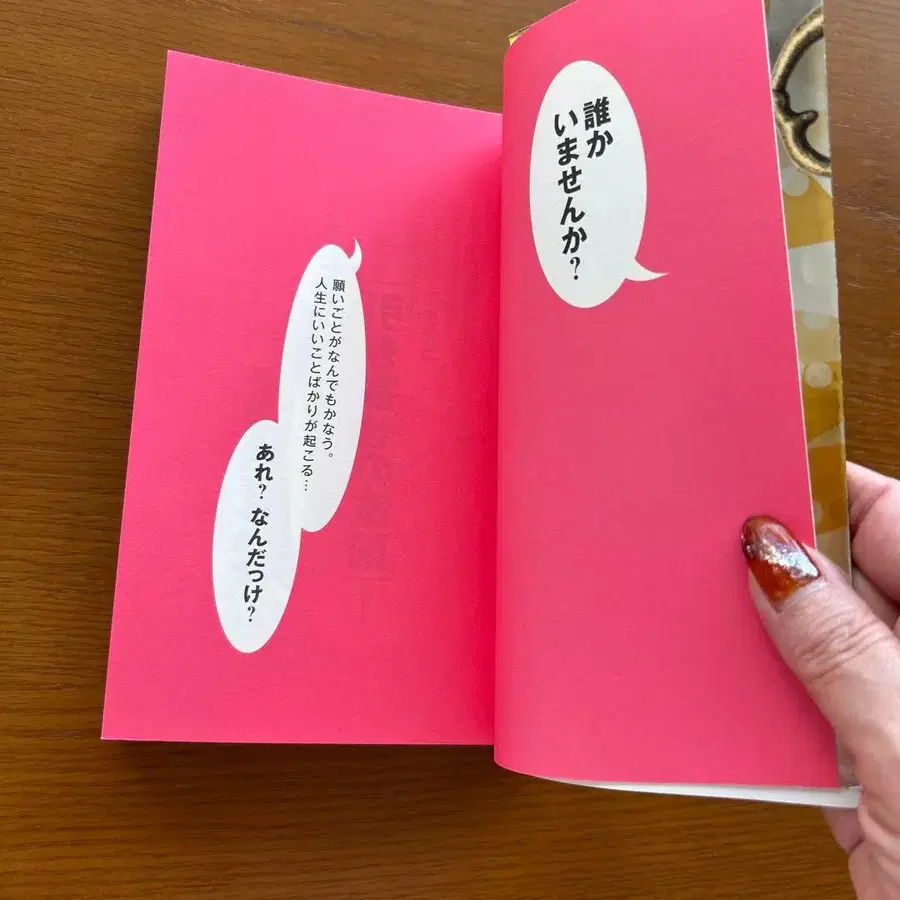 誰か
いませんか?
願いごとがなんでもかなう。
人生にいいことばかりが起こる…
あれ? なんだっけ?